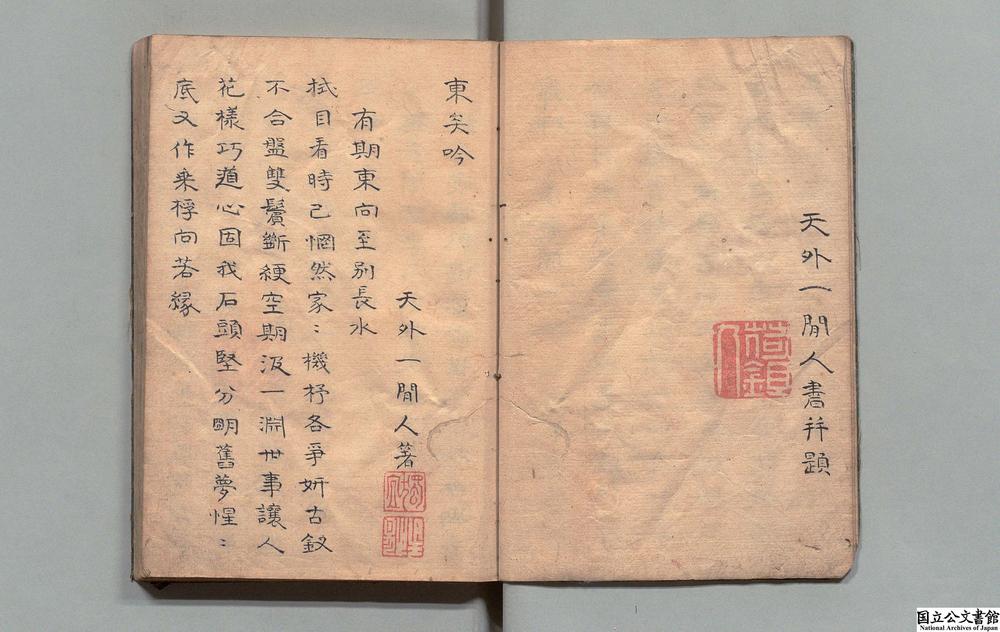 天外一閒人書并題
東矣吟
天外一閒人著
有期東向至別長水
拭目看時已惘然家〻機杼各爭妍古釵
不合盤雙鬢斷綆空期汲一淵世事讓人
花樣巧道心固我石頭堅分明舊夢惺〻
底又作乘桴向若緣
国立公文書館
National Archives of Japan